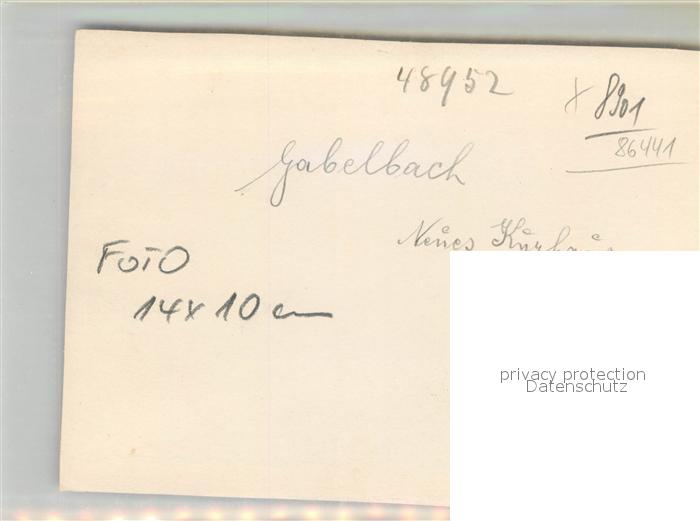 48952
x 8901
86441
Gabelbach
Neues Kurhaus
FOTO
14x10 cm
privacy protection
Datenschutz